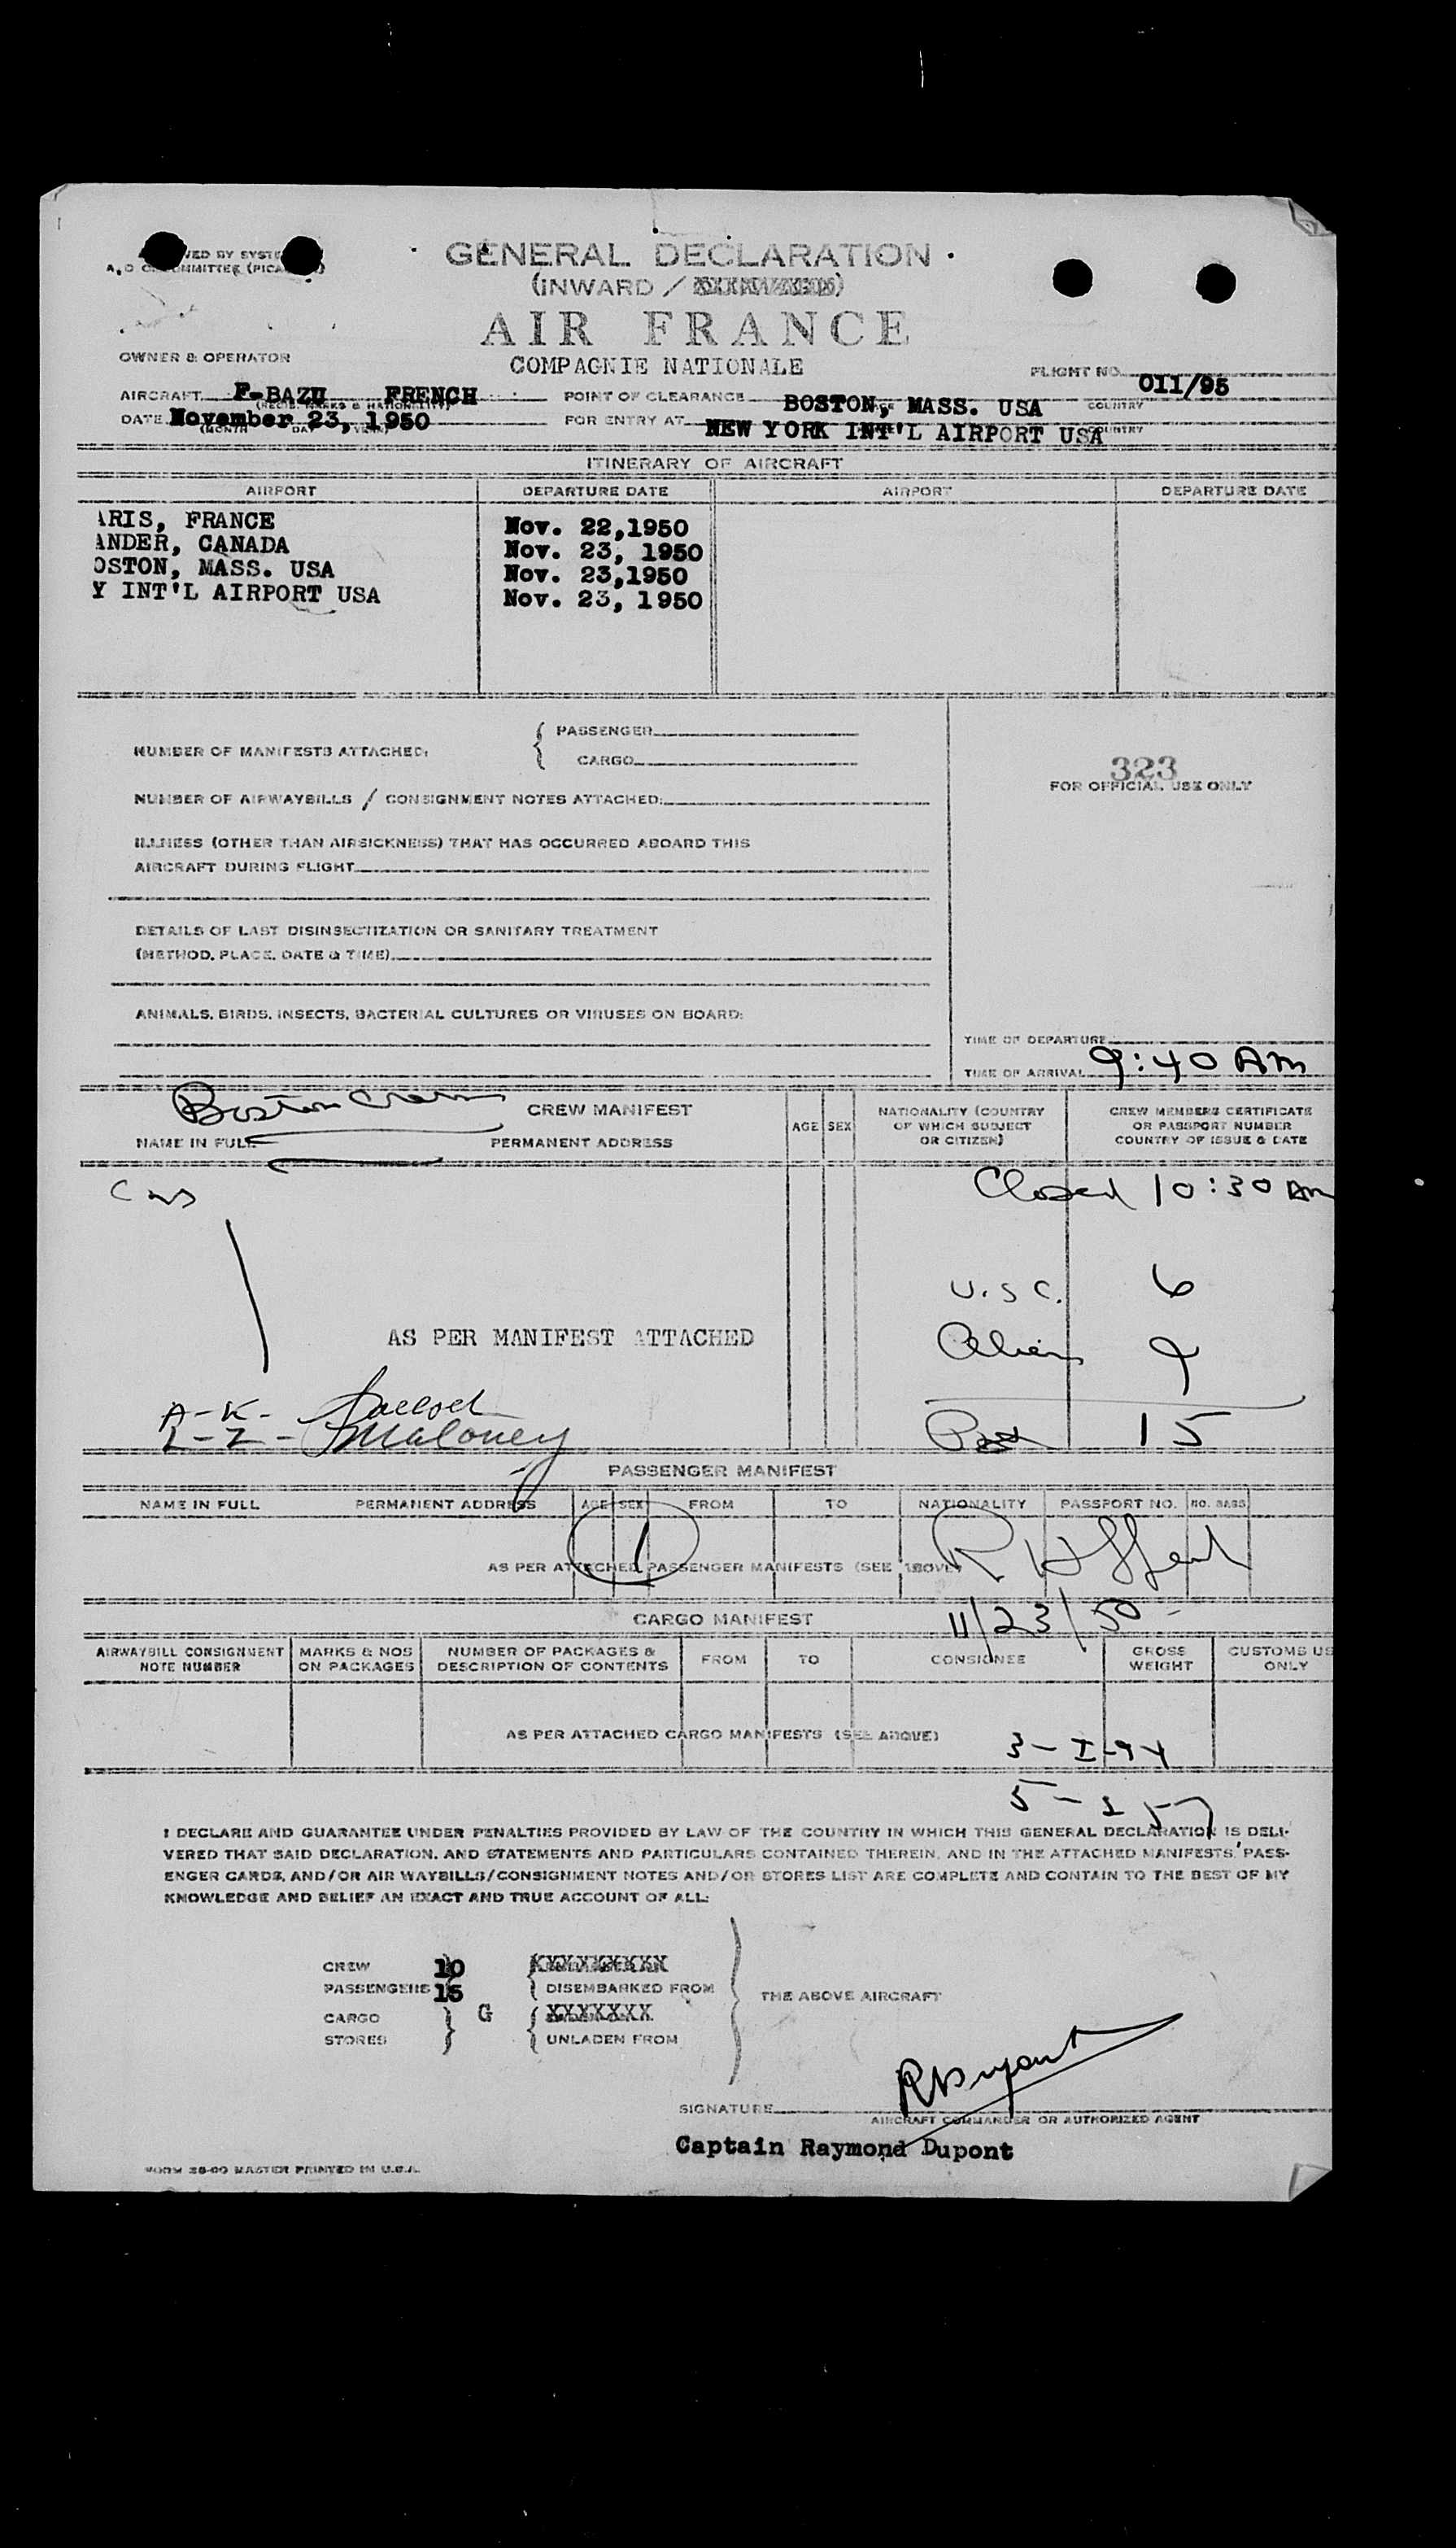 GENERAL DECLARATION
(INWARD /
AIR FRANCE
COMPAGNIE NATIONALE
OWNER & OPERATOR
FLIGHT NO. 011/95
AIRCRAFT F-BAZU FRENCH
POINT OF CLEARANCE BOSTON, MASS. USA COUNTRY
(REGIS. MARKS & NATIONALITY)
DATE November 23, 1950
FOR ENTRY AT NEW YORK INT'L AIRPORT USA COUNTRY
(MONTH DAY YEAR)
ITINERARY OF AIRCRAFT
AIRPORT DEPARTURE DATE AIRPORT DEPARTURE DATE
ARIS, FRANCE Nov. 22,1950
ANDER, CANADA Nov. 23, 1950
OSTON, MASS. USA Nov. 23,1950
Y INT'L AIRPORT USA Nov. 23, 1950
NUMBER OF MANIFESTS ATTACHED:
PASSENGER
CARGO
323
FOR OFFICIAL USE ONLY
NUMBER OF AIRWAYBILLS / CONSIGNMENT NOTES ATTACHED:
ILLNESS (OTHER THAN AIRSICKNESS) THAT HAS OCCURRED ABOARD THIS
AIRCRAFT DURING FLIGHT
DETAILS OF LAST DISINSECTIZATION OR SANITARY TREATMENT
(METHOD, PLACE, DATE & TIME)
ANIMALS, BIRDS, INSECTS, BACTERIAL CULTURES OR VIRUSES ON BOARD:
TIME OF DEPARTURE
TIME OF ARRIVAL 9:40 AM
Boston
CREW MANIFEST
NAME IN FULL PERMANENT ADDRESS AGE SEX
NATIONALITY (COUNTRY
OF WHICH SUBJECT
OR CITIZEN)
CREW MEMBERS CERTIFICATE
OR PASSPORT NUMBER
COUNTRY OF ISSUE & DATE
Closed 10:30 AM
U.S C. 6
Alien 9
AS PER MANIFEST ATTACHED
A-K-
L-Z- Maloney
15
PASSENGER MANIFEST
NAME IN FULL PERMANENT ADDRESS AGE SEX FROM TO NATIONALITY PASSPORT NO. NO. BAGS
1
AS PER ATTACHED PASSENGER MANIFESTS (SEE ABOVE)
11/23/50
CARGO MANIFEST
AIRWAYBILL CONSIGNMENT
NOTE NUMBER
MARKS & NOS
ON PACKAGES
NUMBER OF PACKAGES &
DESCRIPTION OF CONTENTS
FROM TO CONSIGNEE
GROSS
WEIGHT
CUSTOMS US
ONLY
AS PER ATTACHED CARGO MANIFESTS (SEE ABOVE)
3-I-94
I DECLARE AND GUARANTEE UNDER PENALTIES PROVIDED BY LAW OF THE COUNTRY IN WHICH THIS GENERAL DECLARATION IS DELI-
VERED THAT SAID DECLARATION, AND STATEMENTS AND PARTICULARS CONTAINED THEREIN, AND IN THE ATTACHED MANIFESTS, PASS-
ENGER CARDS, AND/OR AIR WAYBILLS/CONSIGNMENT NOTES AND/OR STORES LIST ARE COMPLETE AND CONTAIN TO THE BEST OF MY
KNOWLEDGE AND BELIEF AN EXACT AND TRUE ACCOUNT OF ALL:
CREW 10
PASSENGERS 15 DISEMBARKED FROM
THE ABOVE AIRCRAFT
CARGO G XXXXXXX
STORES UNLADEN FROM
SIGNATURE RDupont
AIRCRAFT COMMANDER OR AUTHORIZED AGENT
Captain Raymond Dupont
FORM 28-00 MASTER PRINTED IN U.S.A.